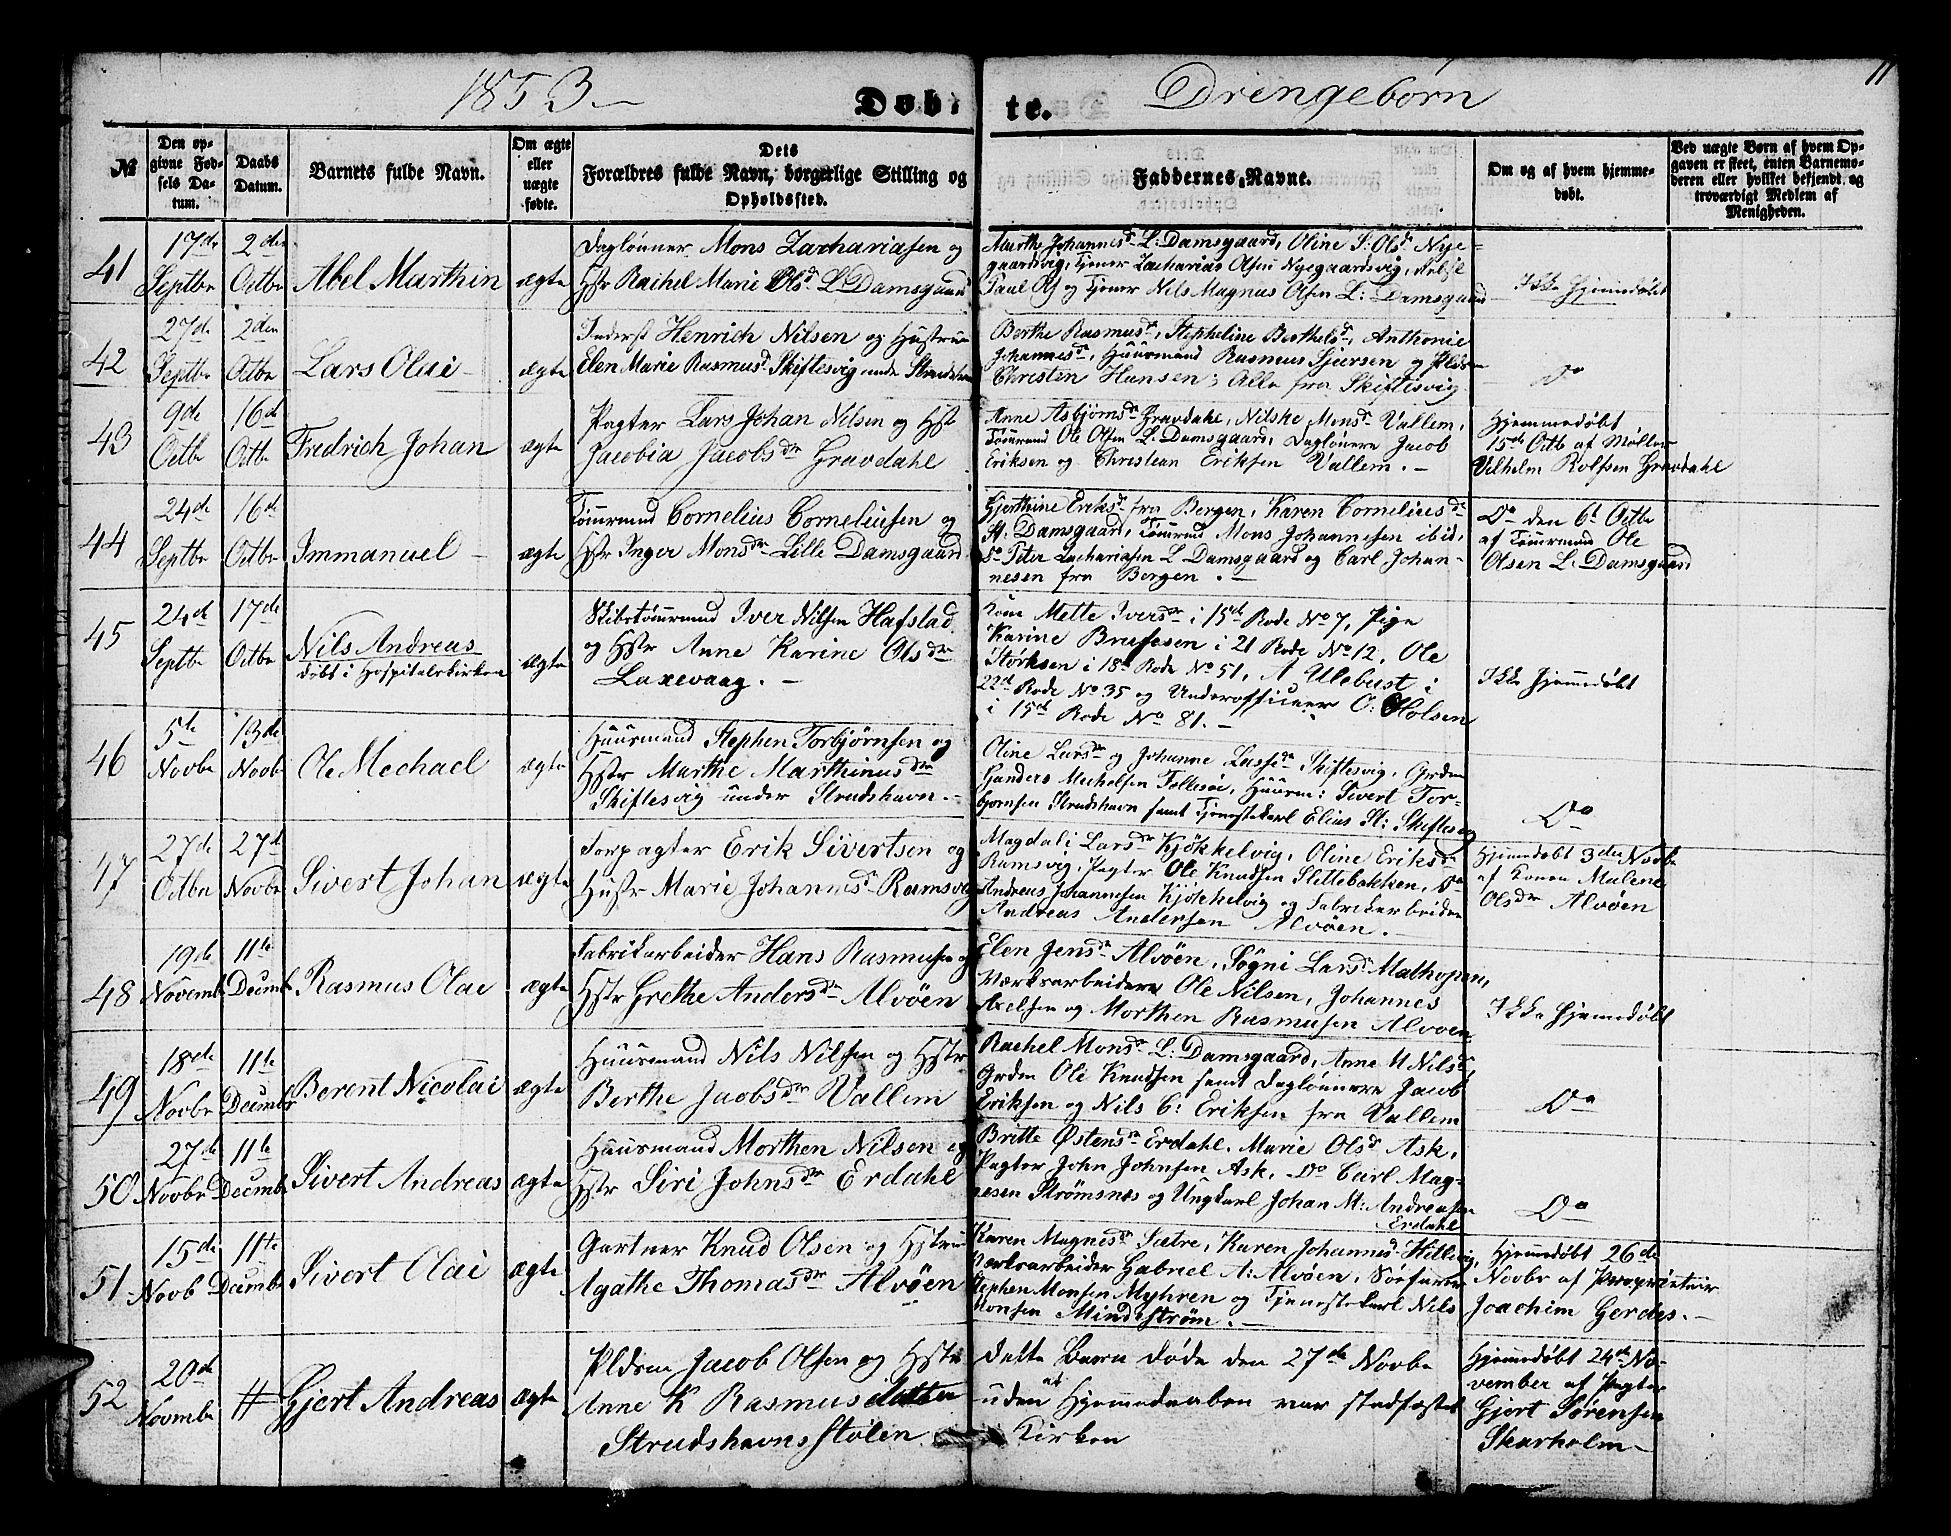 1853
Døbte.
Drengebørn
11
№
Den opgivne Fødsels Datum.
Daabs Datum.
Barnets fulde Navn.
Om ægte eller uægte fødte.
Dets Forældres fulde Navn, borgerlige Stilling og Opholdssted.
Faddernes Navne.
Om og af hvem hjemmedøbt.
Ved uægte Børn af hvem Opgaven er skeet, enten Barnemoderen eller hvilket bekjendt og troværdigt Medlem af Menigheden.
41
17de Septbr
2den Octbr
Abel Marthin
ægte
Daglønner Mons Zachariasen og
Hstr Rachel Marie Olsd L Damsgaard
Marthe Johannesd L: Damsgaard, Oline S: Olsd Nye-
gaardsvig, Tjener Zacharias Olsen Nyegaardsvig,
Paul og Tjener Nils Magnus Olsen L: Damsgaard
Ikke Hjemmedøbt
42
27de Septbr
2den Octbr
Lars Olai
ægte
Inderst Henrich Nilsen og Hustrue
Elen Marie Rasmusd Skiftesvig under Strudshavn
Berthe Rasmusd, Stepheline Berthelsd, Anthonie
Johannesd, Huusmand Rasmus Sjursen og Pldsm
Christen Hansen; Alle fra Skiftesvig
Do
43
9de Octbr
16d Octbr
Fredrich Johan
ægte
Pagter Lars Johan Nilsen og Hst
Jacobia Jacobsdr Gravdahl
Anne Asbjørnsd Gravdahl, Nilske Monsd Vallem,
Tømrmd Ole Olsen L: Damsgaard, Daglønnere Jacob
Eriksen og Christian Eriksen Vallem. –
Hjemmedøbt
15de Octb af Møller
Vilhelm Rolfsen Gravdahl
44
24de Septbr
16d Octbr
Immanuel
ægte
Tømrmand Cornelius Corneliussen og
Hstr Inger Monsdr Lille Damsgaard
Gjerthine Eriksd fra Bergen, Karen Corneliusd
St: Damsgaard, Tømrmd Mons Johannesen ibid,
Do Peter Zachariasen L Damsgaard og Carl Johan-
nesen fra Bergen. –
Do den 6t Octbr
af Tømrmand Ole
Olsen L: Damsgaard
45
24de Septbr
17de Octbr
Nils Andreas
døbt i Hospitalskirken
ægte
Skibstømrmand Iver Nilsen Hafstad
og Hstr Anne Karine Olsdr
Laxevaag. –
Kone Mette Iversdr i 15d Rode No 7, Pige
Karine Brufesen i 21 Rode No 12, Ole
Størksen i 18d Rode No 51, A Ulebust i
22d Rode No 35 og Underofficeer O: Holsen
i 15d Rode No 81. –
Ikke Hjemmedøbt
46
5te Novbr
13de Novbr
Ole Mechael
ægte
Huusmand Stephen Torbjørnsen og
Hstr Marthe Marthinusdr
Skiftesvig under Strudshavn. –
Oline Larsdr og Johanne Lassed Skiftesvig, Grdm
Mechelsen Follesøe, Huusm: Sivert Tor-
bjørnsen Strudshavn samt Tjenestekarl Elias St: Skiftesvig
Do
47
27de Octbr
27d Novbr
Sivert Johan
ægte
Forpagter Erik Sivertsen og
Hustr Marie Johannesd Ramsvig
Magdali Larsdr Kjøkkelvig, Oline Eriksd
Ramsvig, Pagter Ole Knudsen Slettebakken, Do
Andreas Johannesen Kjøkkelvig og Fabrikarbeider
Andreas Andersen Alvøen. –
Hjemmedøbt 3de Novbr
af Konen Malene
Olsdr Alvøen
48
19de Novembr
11te Decmbr
Rasmus Olai
ægte
Fabrikarbeider Hans Rasmusen og
Hstr Grethe Andersdr Alvøen
Elen Jensd Alvøen, Søgni Larsd Mathopen,
Værksarbeidere Ole Nilsen, Johannes
Axelsen og Morthen Rasmusen Alvøen
Ikke Hjemmedøbt
49
18de Novbr
11te Decmbr
Berent Nicolai
ægte
Huusmand Nils Nilsen og Hstr
Berthe Jacobsdr Vallem
Rachel Monsd L: Damsgaard, Anne M Nilsd,
Grdm Ole Knudsen samt Daglønnere Jacob
Eriksen og Nils C: Eriksen fra Vallem
Do
50
27de Novbr
11te Decmbr
Sivert Andreas
ægte
Huusmand Morthen Nilsen og
Hstr Siri Johnsdr Erdahl
Britte Østensd Erdahl, Marie Olsd Ask,
Pagter John Johnsen Ask, Do Carl Mag-
nesen Strømsnæs og Ungkarl Johan M: Andreasen
Erdahl
Do
51
15de Novb
11te Decmbr
Sivert Olai
ægte
Gartner Knud Olsen og Hstru
Agathe Thomasdr Alvøen
Karen Magnesd Sætre, Karen Johannesd Hillevig,
Værksarbeider Gabriel A: Alvøen, Søefarer
Stephen Monsen Myhren og Tjenestekarl Nils
Monsen Mindestrøm. –
Hjemmedøbt 26de
Novbr af Proprietair
Joachim Gerdes. –
52
20de Novmbr
#
Gjert Andreas
ægte
Pldsm Jacob Olsen og Hstr
Anne K Rasmusdatter
Strudshavnsstølen
Dette Barn døde den 27de Novbr
uden at Hjemmedaaben var stadfæstet i
Kirken
Hjemmedøbt 24de No-
vember af Pagter
Gjert Sørensen
Skarholm –